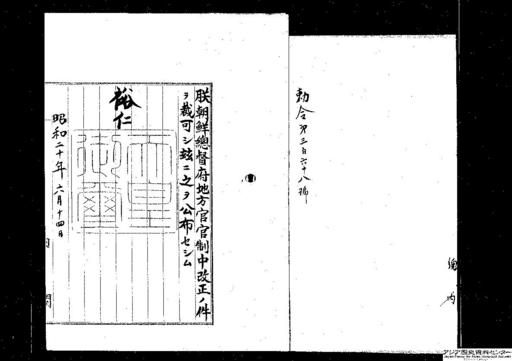 勅令第三百六十八号
朕朝鮮総督府地方官官制中改正ノ件
ヲ裁可シ玆ニ之ヲ公布セシム
裕仁
天皇御璽
昭和二十年六月十四日
内
閣
アジア歴史資料センター